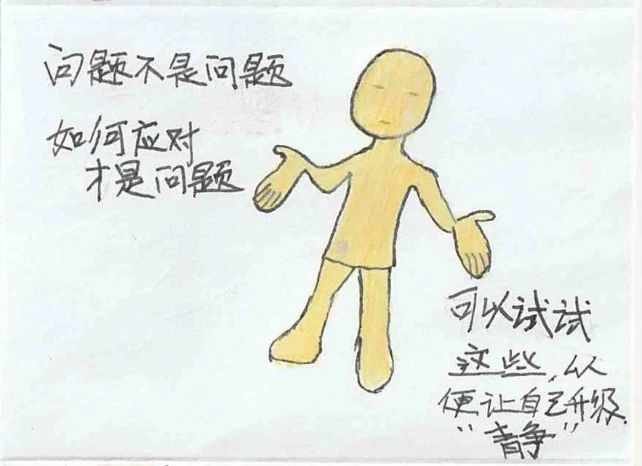 问题不是问题
如何应对
才是问题
可以试试
这些,以
便让自己升级
"静"